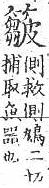 側救側鳩二切
捕取魚器也